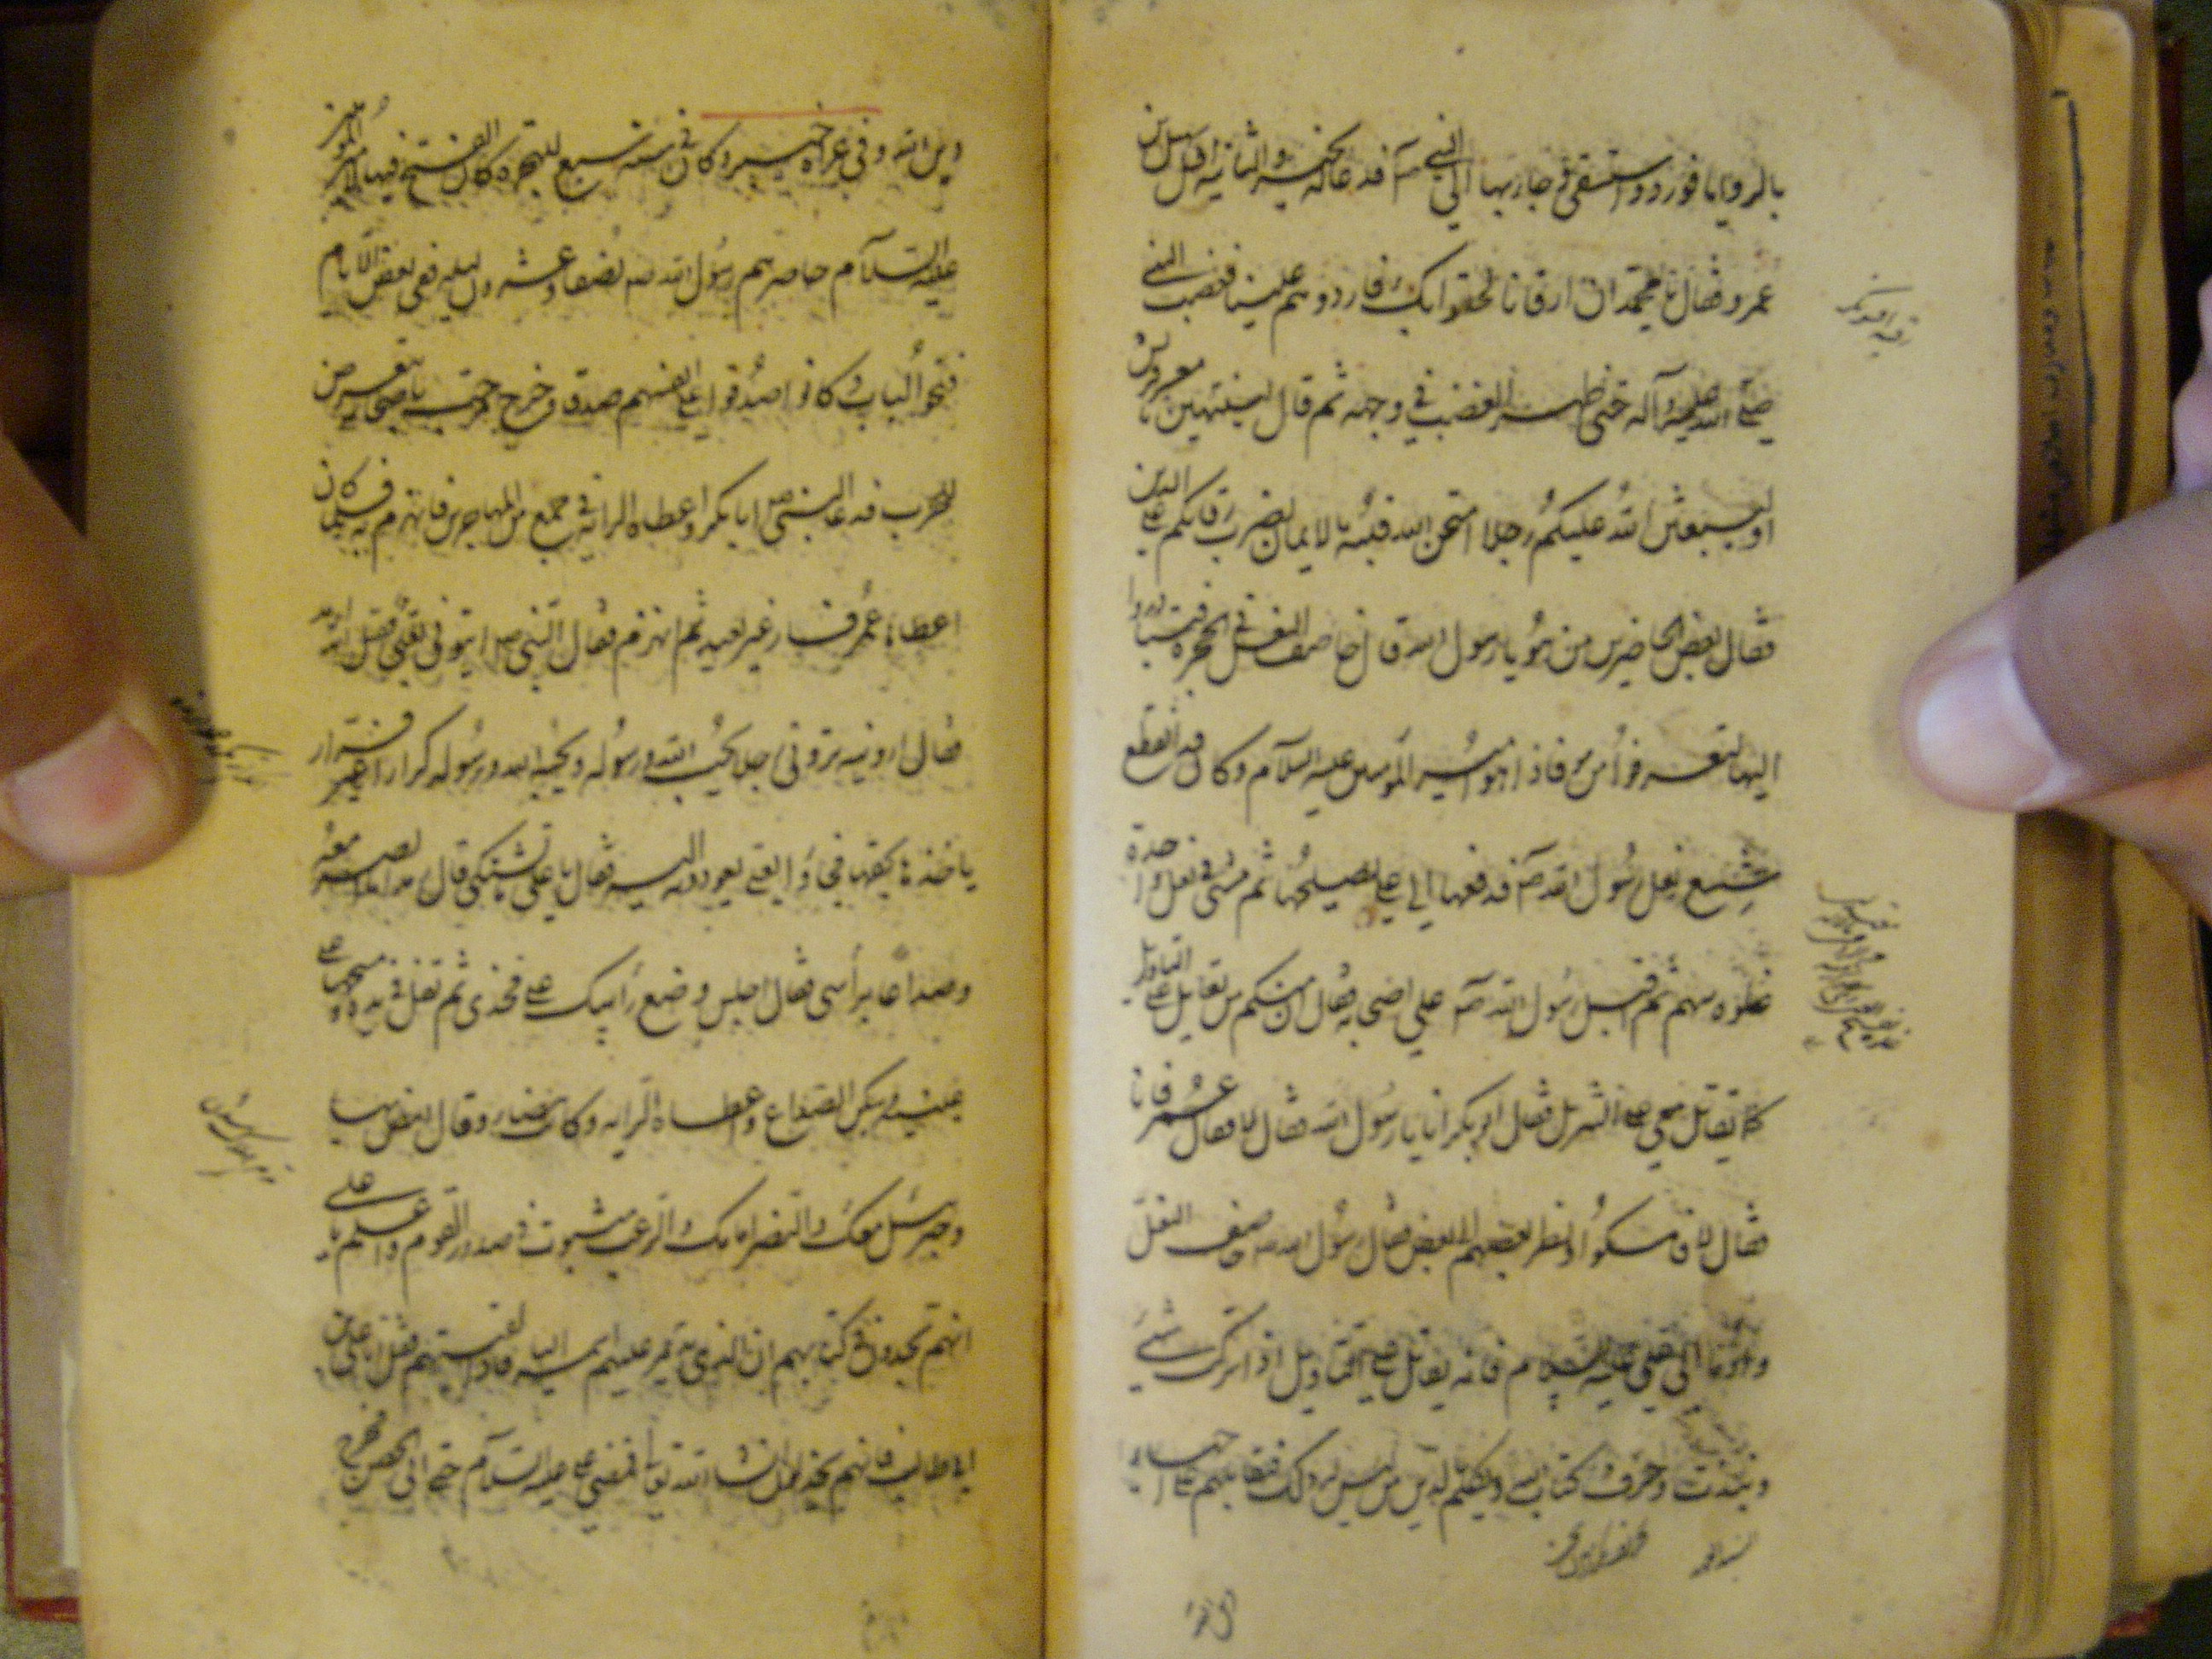 بالروايا فورد واستقى وجاء بها الى النبي ص فدعا له بخير والثانية اقبل سهيل بن
عمرو فقال يا محمد ان ارقانا لحقوا بك فارددهم علينا فغضب النبي
صلى الله عليه وآله حتى ظهر الغضب في وجهه ثم قال لتنتهين يا معشر قريش
او ليبعثن الله عليكم رجلا امتحن الله قلبه بالايمان يضرب رقابكم على الدين
فقال بعض الحاضرين من هو يا رسول الله قال خاصف النعل في الحجرة فتبادروا
اليها ليعرفوا من فاذا هو امير المؤمنين عليه السلام وكان قد انقطع
شسع نعل رسول الله ص فدفعها الى علي يصلحها ثم مشى في نعل واحدة
غلوة سهم ثم اقبل رسول الله ص على اصحابه فقال ان منكم من يقاتل على التأويل
كما يقاتل معي على التنزيل فقال ابو بكر انا يا رسول الله فقال لا فقال عمر فانا
فقال لا فامسكوا ونظر بعضهم الى بعض فقال رسول الله ص خاصف النعل
واومأ الى علي عليه السلام فانه يقاتل على التأويل اذا تركت سنتي
ونبذت وحرف كتاب الله وتكلم في الدين من ليس له ذلك فيقاتلهم على احياء
دين الله وفي غزاة خيبر وكان في سنة سبع للهجرة كان الفتح فيها لامير المؤمنين
عليه السلام حاصرهم رسول الله ص بضعا وعشرون ليلة ففي بعض الايام
فتحوا الباب وكانوا خندقوا على انفسهم خندقا وخرج مرحب باصحابه يتعرض
للحرب فدعا النبي ص ابا بكر واعطاه الراية في جمع من المهاجرين فانهزم فلما كان
اعطاها عمر فسار غير بعيد ثم انهزم فقال النبي ص ايتوني بعلي فقيل انه ارمد
فقال ارونيه تروني رجلا يحب الله ورسوله ويحبه الله ورسوله كرارا غير فرار
ياخذها بحقها فجاؤا بعلي يقودونه اليه فقال يا علي ما تشتكي قال رمدا ما ابصر معه
وصداعا برأسي فقال اجلس وضع رأسك على فخذي ثم تفل في يده ومسحها على
عينيه وسكن الصداع واعطاه الراية وكانت بيضاء وقال امض بها
وجبرئيل معك والنصر امامك والرعب مثبوت في صدور القوم واعلم يا علي
انهم يجدون في كتابهم ان الذي يدمر عليهم اسمه اليا فاذا لقيتهم فقل انا علي بن
ابي طالب فانهم يخذلون ان شاء الله تعالى فمضى علي عليه السلام حتى اتى الحصن فخرج